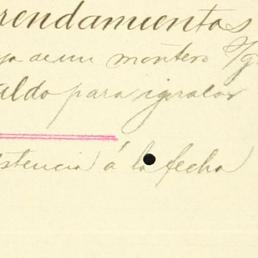 rendamientos
ja de un montero S/g
aldo para igualar
istencia á la fecha